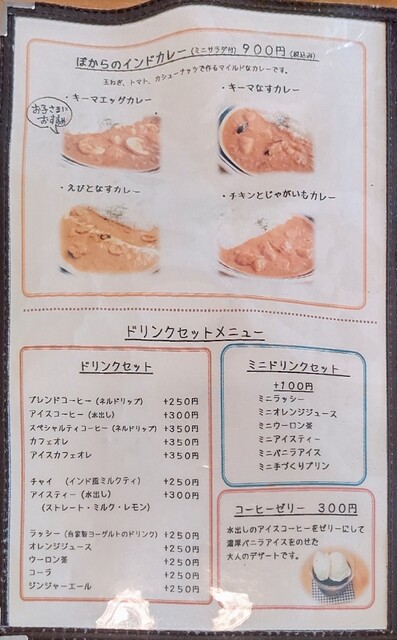 ぽからのインドカレー(ミニサラダ付)900円(税込み)
玉ねぎ、トマト、カシューナッツで作るマイルドなカレーです。
・キーマエッグカレー
・キーマなすカレー
お子さまに
おすすめ
・えびとなすカレー
・チキンとじゃがいもカレー
ドリンクセットメニュー
ドリンクセット
ブレンドコーヒー(ネルドリップ) +250円
アイスコーヒー(水出し) +300円
スペシャルティコーヒー(ネルドリップ) +350円
カフェオレ +350円
アイスカフェオレ +350円
チャイ (インド風ミルクティ) +250円
アイスティー(水出し) +300円
(ストレート・ミルク・レモン)
ラッシー(自家製ヨーグルトのドリンク) +250円
オレンジジュース +250円
ウーロン茶 +250円
コーラ +250円
ジンジャーエール +250円
ミニドリンクセット
+100円
ミニラッシー
ミニオレンジジュース
ミニウーロン茶
ミニアイスティー
ミニバニラアイス
ミニ手づくりプリン
コーヒーゼリー 300円
水出しのアイスコーヒーをゼリーにして
濃厚バニラアイスをのせた
大人のデザートです。